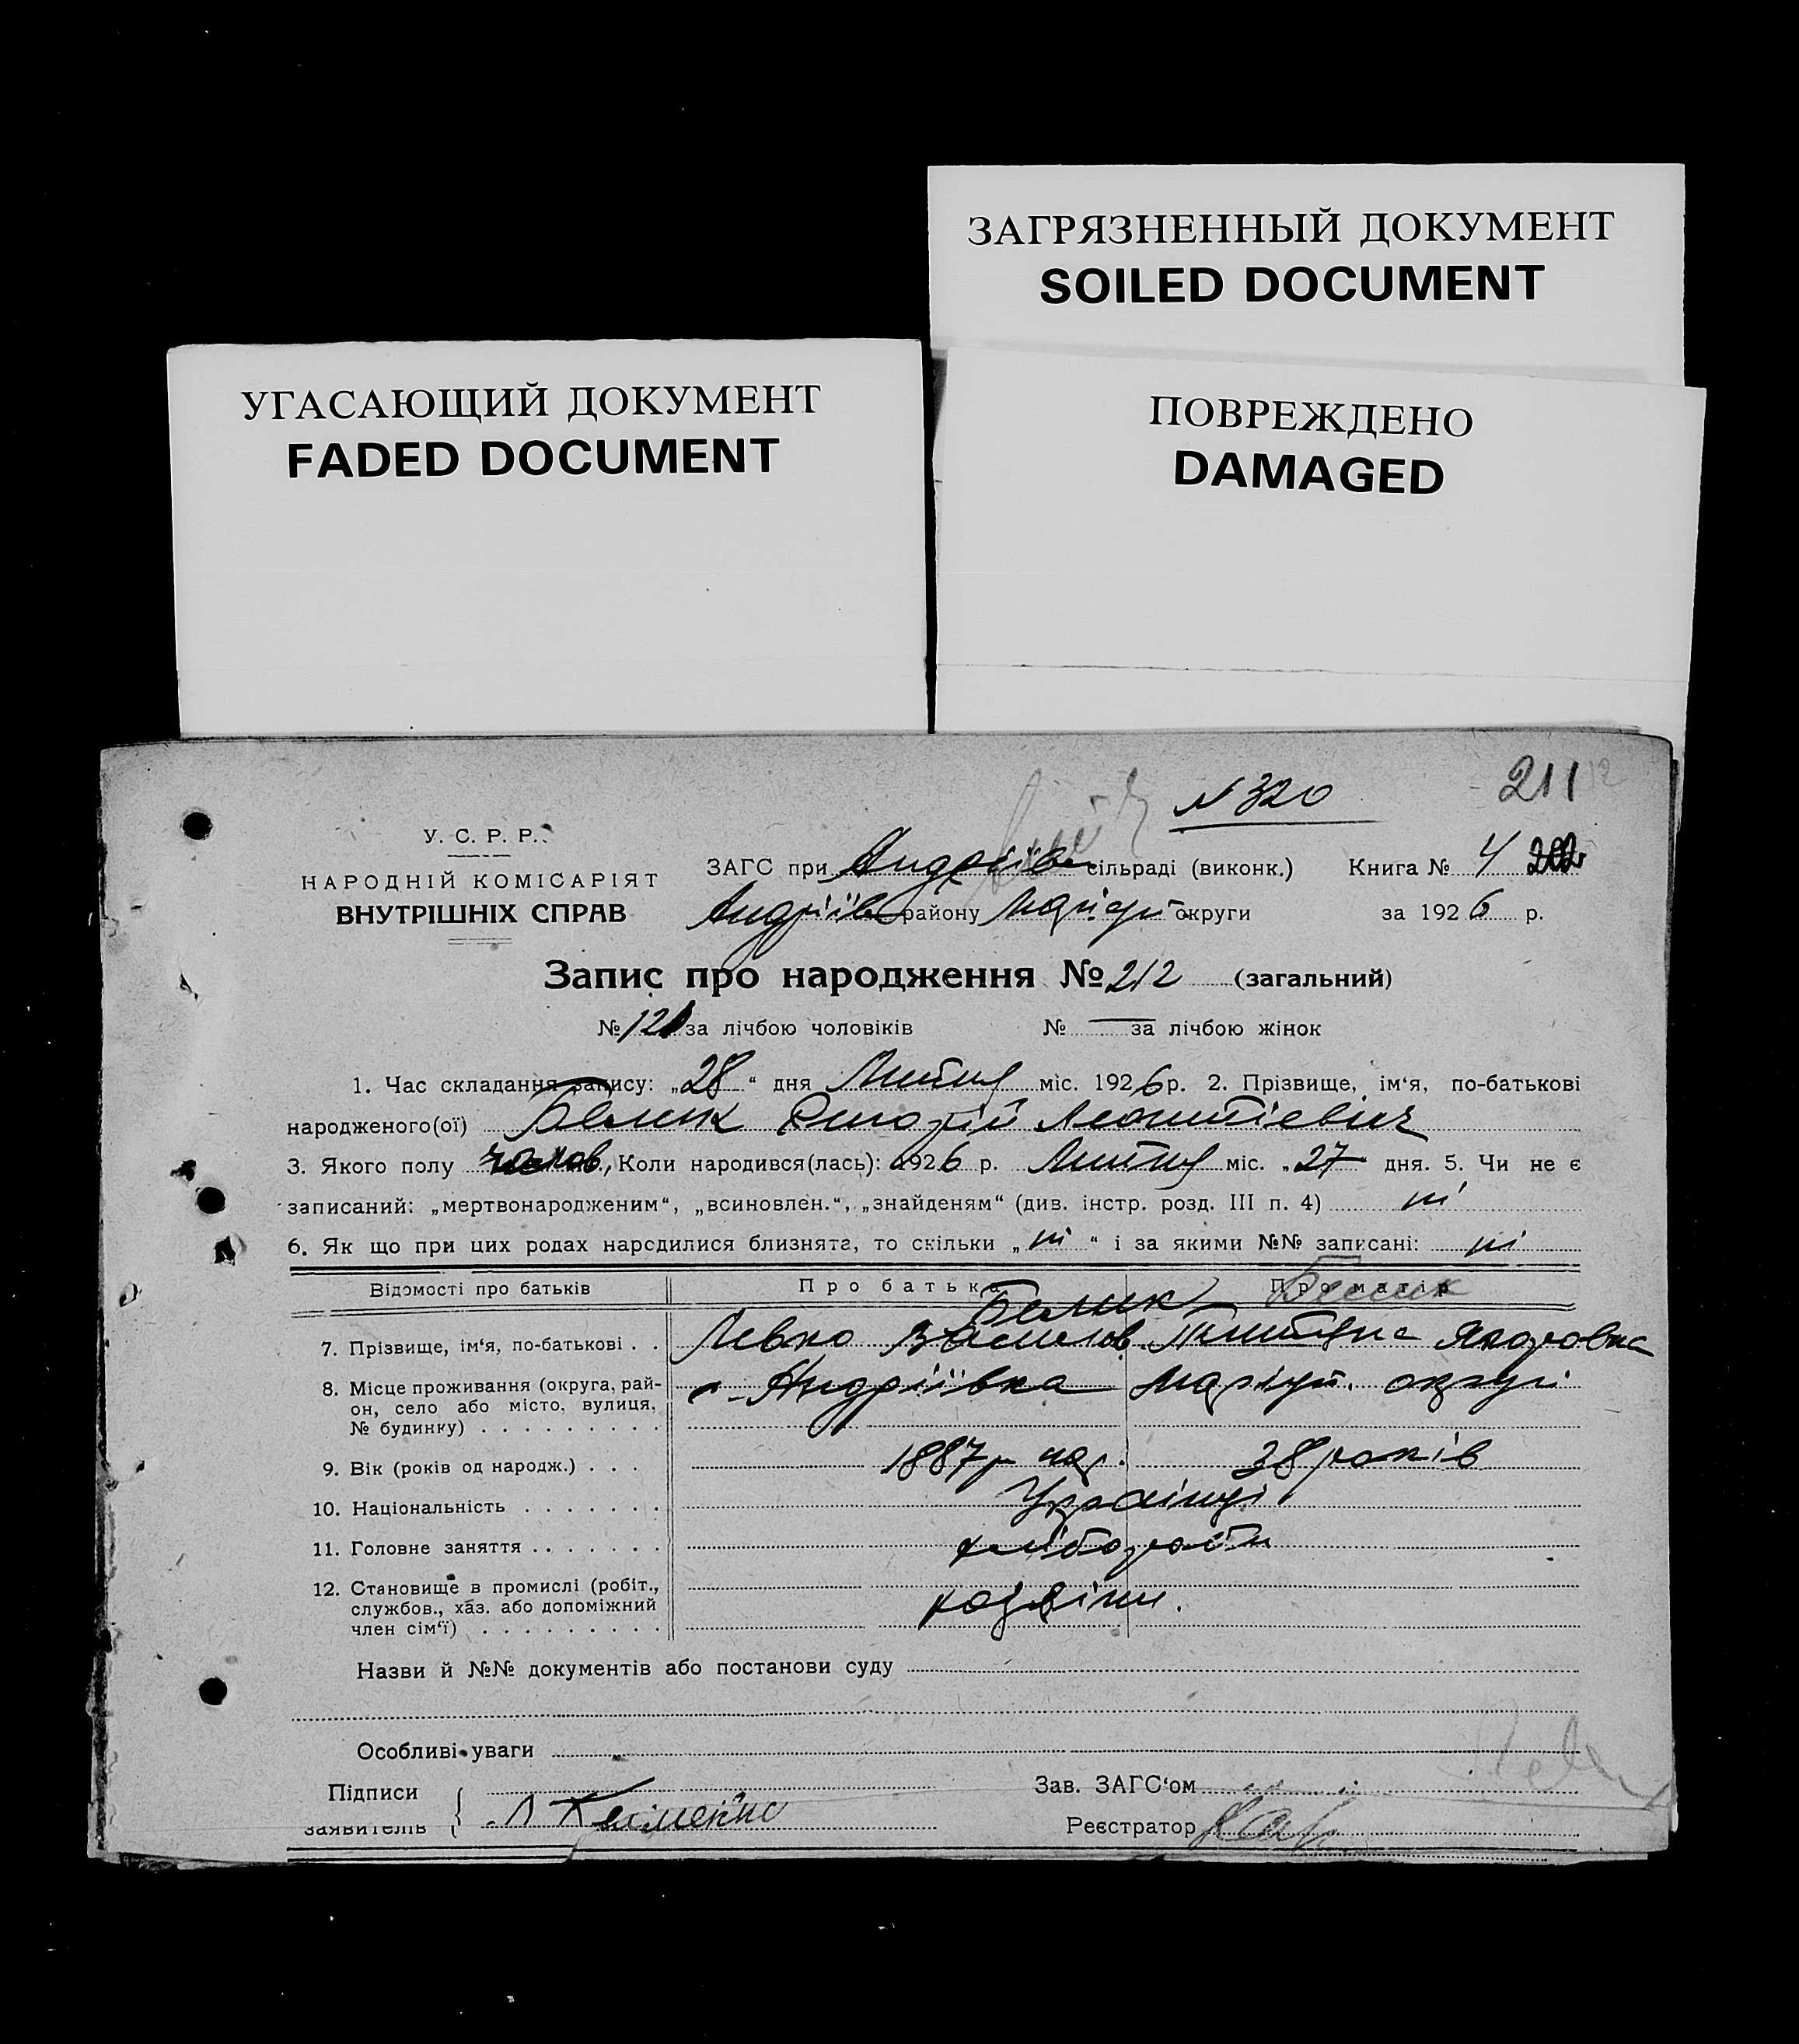 ЗАГРЯЗНЕННЫЙ ДОКУМЕНТ
SOILED DOCUMENT
УГАСАЮЩИЙ ДОКУМЕНТ
FADED DOCUMENT
ПОВРЕЖДЕНО
DAMAGED
N 320
211
У. С. Р. Р.
НАРОДНІЙ КОМІСАРІЯТ
ВНУТРІШНІХ СПРАВ
ЗАГС при Андріїв сільраді (виконк.) Книга № 4
Андріїв району Маріюп округи за 1926 р.
Запис про народження № 212 (загальний)
№ 121 за лічбою чоловіків № — за лічбою жінок
1. Час складання запису: „28“ дня Липня міс. 1926 р. 2. Прізвище, ім‘я, по-батькові
народженого(ої) Белик Григорій Леонтіевич
3. Якого полу чолов, Коли народився(лась): 1926 р. Липня міс. „27 дня. 5. Чи не є
записаний: „мертвонародженим“, „всиновлен.“, „знайденям“ (див. інстр. розд. III п. 4) ні
6. Як що при цих родах народилися близнята, то скільки „ні“ і за якими №№ записані: ні
Відомості про батьків Про батька Про матір
Белик Белик
7. Прізвище, ім‘я, по-батькові . . Левко Василів.
8. Місце проживання (округа, рай-
он, село або місто, вулиця,
№ будинку) . . . . . . . . . с. Андріївка Маріуп. округи
9. Вік (років од народж.) . . . 1887 р нар. 38 років
10. Національність . . . . . . . Українці
11. Головне заняття . . . . . . . хлібороби
12. Становище в промислі (робіт.,
службов., хаз. або допоміжний
член сім‘ї) . . . . . . . . . хазяіни.
Назви й №№ документів або постанови суду
Особливі уваги
Підписи
заявителів Л
Зав. ЗАГС‘ом
Реєстратор